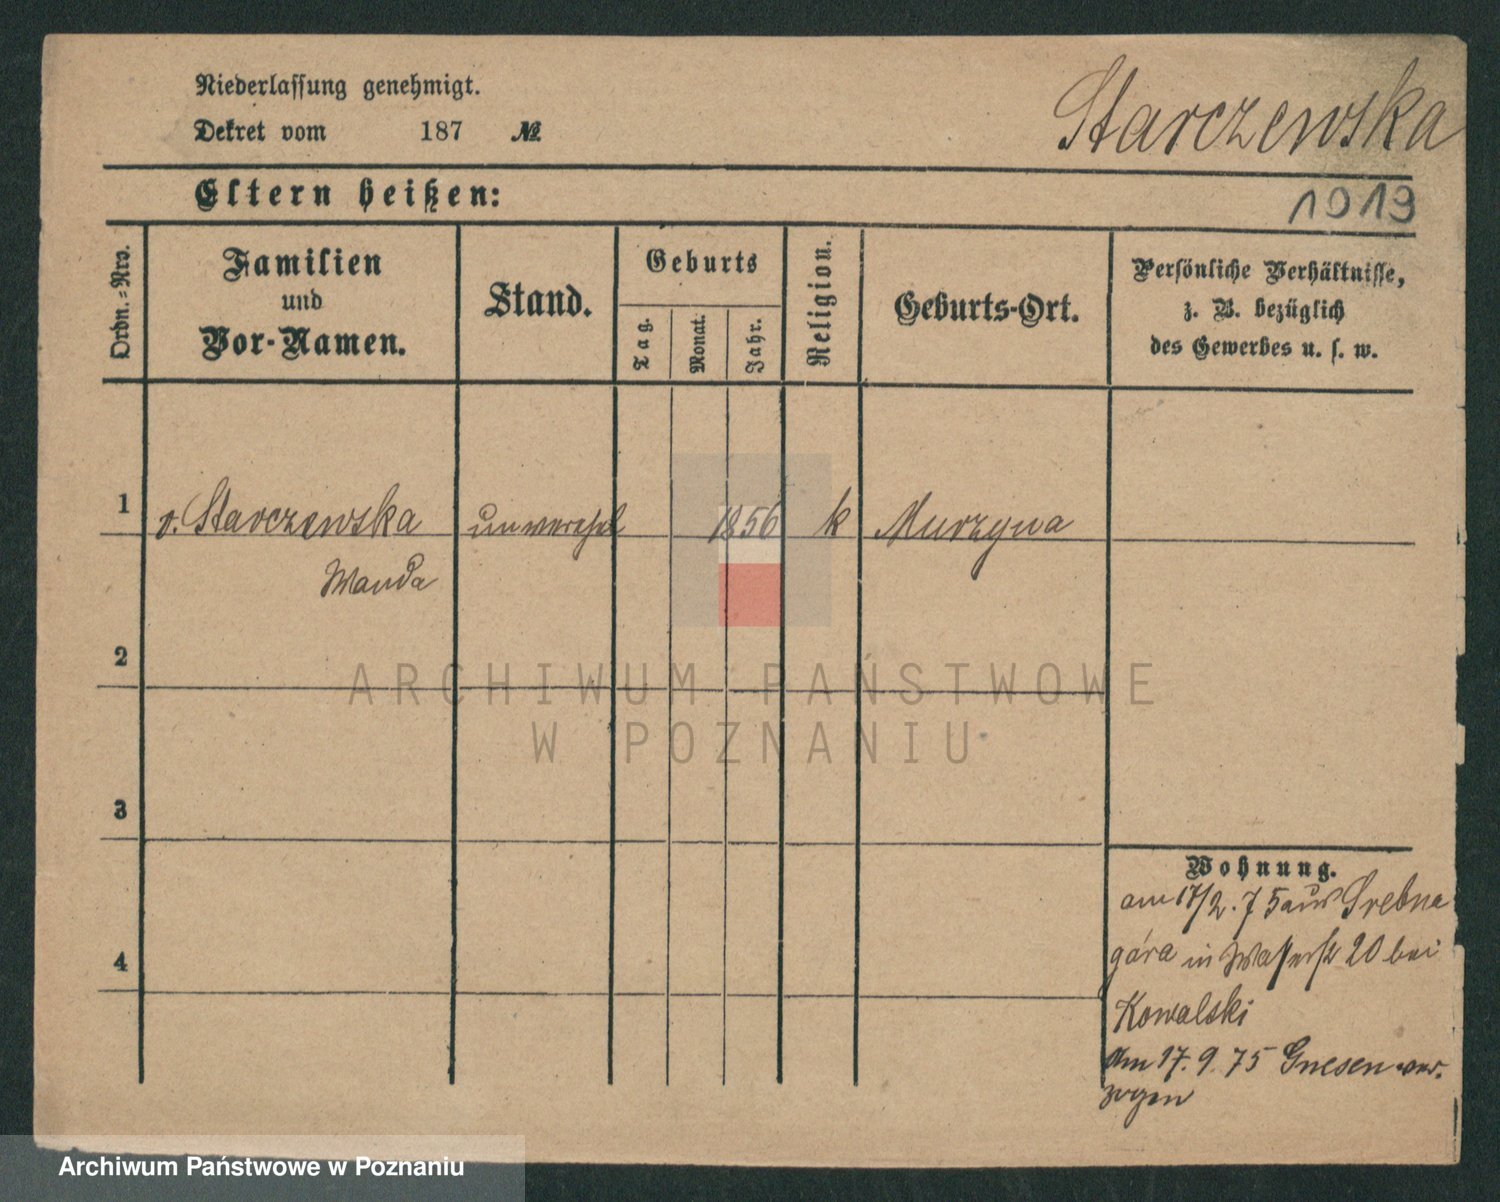 Niederlassung genehmigt.
Dekret vom 187 №
Starczewska
Eltern heißen:
1919
Ordn.-Nro.
Familien
und
Vor-Namen.
Stand.
Geburts
Tag.
Monat.
Jahr.
Religion.
Geburts-Ort.
Persönliche Verhältnisse,
z. B. bezüglich
des Gewerbes u. s. w.
1 v. Starczewska unverehel 1856 k Murzyna
Wanda
2
ARCHIWUM PAŃSTWOWE
W POZNANIU
3
Wohnung.
am 17/2. 75 aus Srebna
góra in Wasserstr 20 bei
4
Kowalski
Am 17. 9. 75 Gnesen ver-
zogen
Archiwum Państwowe w Poznaniu